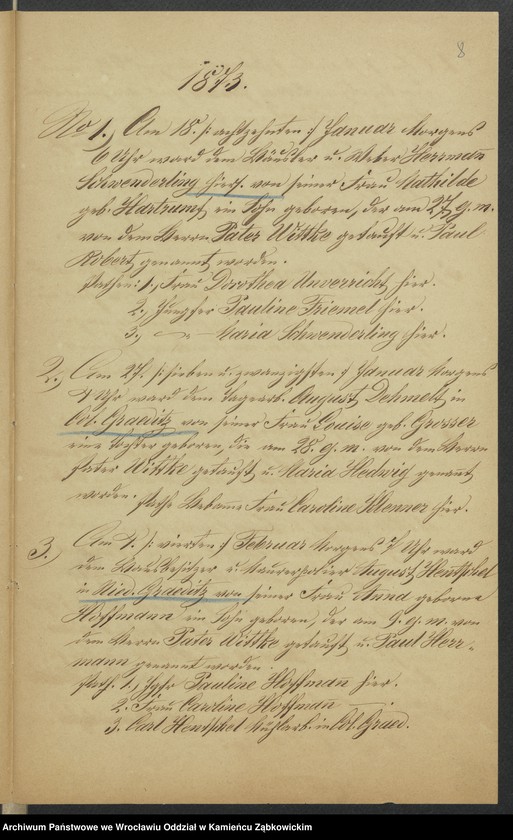 8
1873.
No 1., Am 18. /: achtzehnten :/ Januar Morgens
6 Uhr ward dem Häusler u. Weber Herrman
Schwenderling hiers. von seiner Frau Mathilde
geb. Hartrumpf ein Sohn geboren, der am 27 g. m.
von dem Herrn Pater Wittke getauft u. Paul
Robert genannt worden.
Pathen: 1., Frau Dorothea Unverricht hier.
2. Jungfer Pauline Friemel hier.
3. — " — Maria Schwenderling hier.
2., Am 27. /: sieben u. zwanzigsten :/ Januar Morgens
Uhr ward dem Tagearb. August Dehmelt in
Ob. Graeditz von seiner Frau Louise geb. Grosser
eine Tochter geboren, die am 28. g. m. von dem Herrn
Pater Wittke getauft u. Maria Hedwig genannt
worden. Pathe Hebame Frau Caroline Klenner hier.
3.) Am 4. /: vierten :/ Februar Morgens 7 Uhr ward
dem Hausbesitzer u. Maurerpolier August Hentschel
in Nied. Graeditz von seiner Frau Anna geborne
Hoffmann ein Sohn geboren, der am 9. g. m. von
dem Herrn Pater Wittke getauft u. Paul Herr-
mann genannt worden.
Path. 1., Jgfr Pauline Hoffman hier.
2. Frau Caroline Hoffman
3. Carl Hentschel in Ob. Graed.
Archiwum Państwowe we Wrocławiu Oddział w Kamieńcu Ząbkowickim